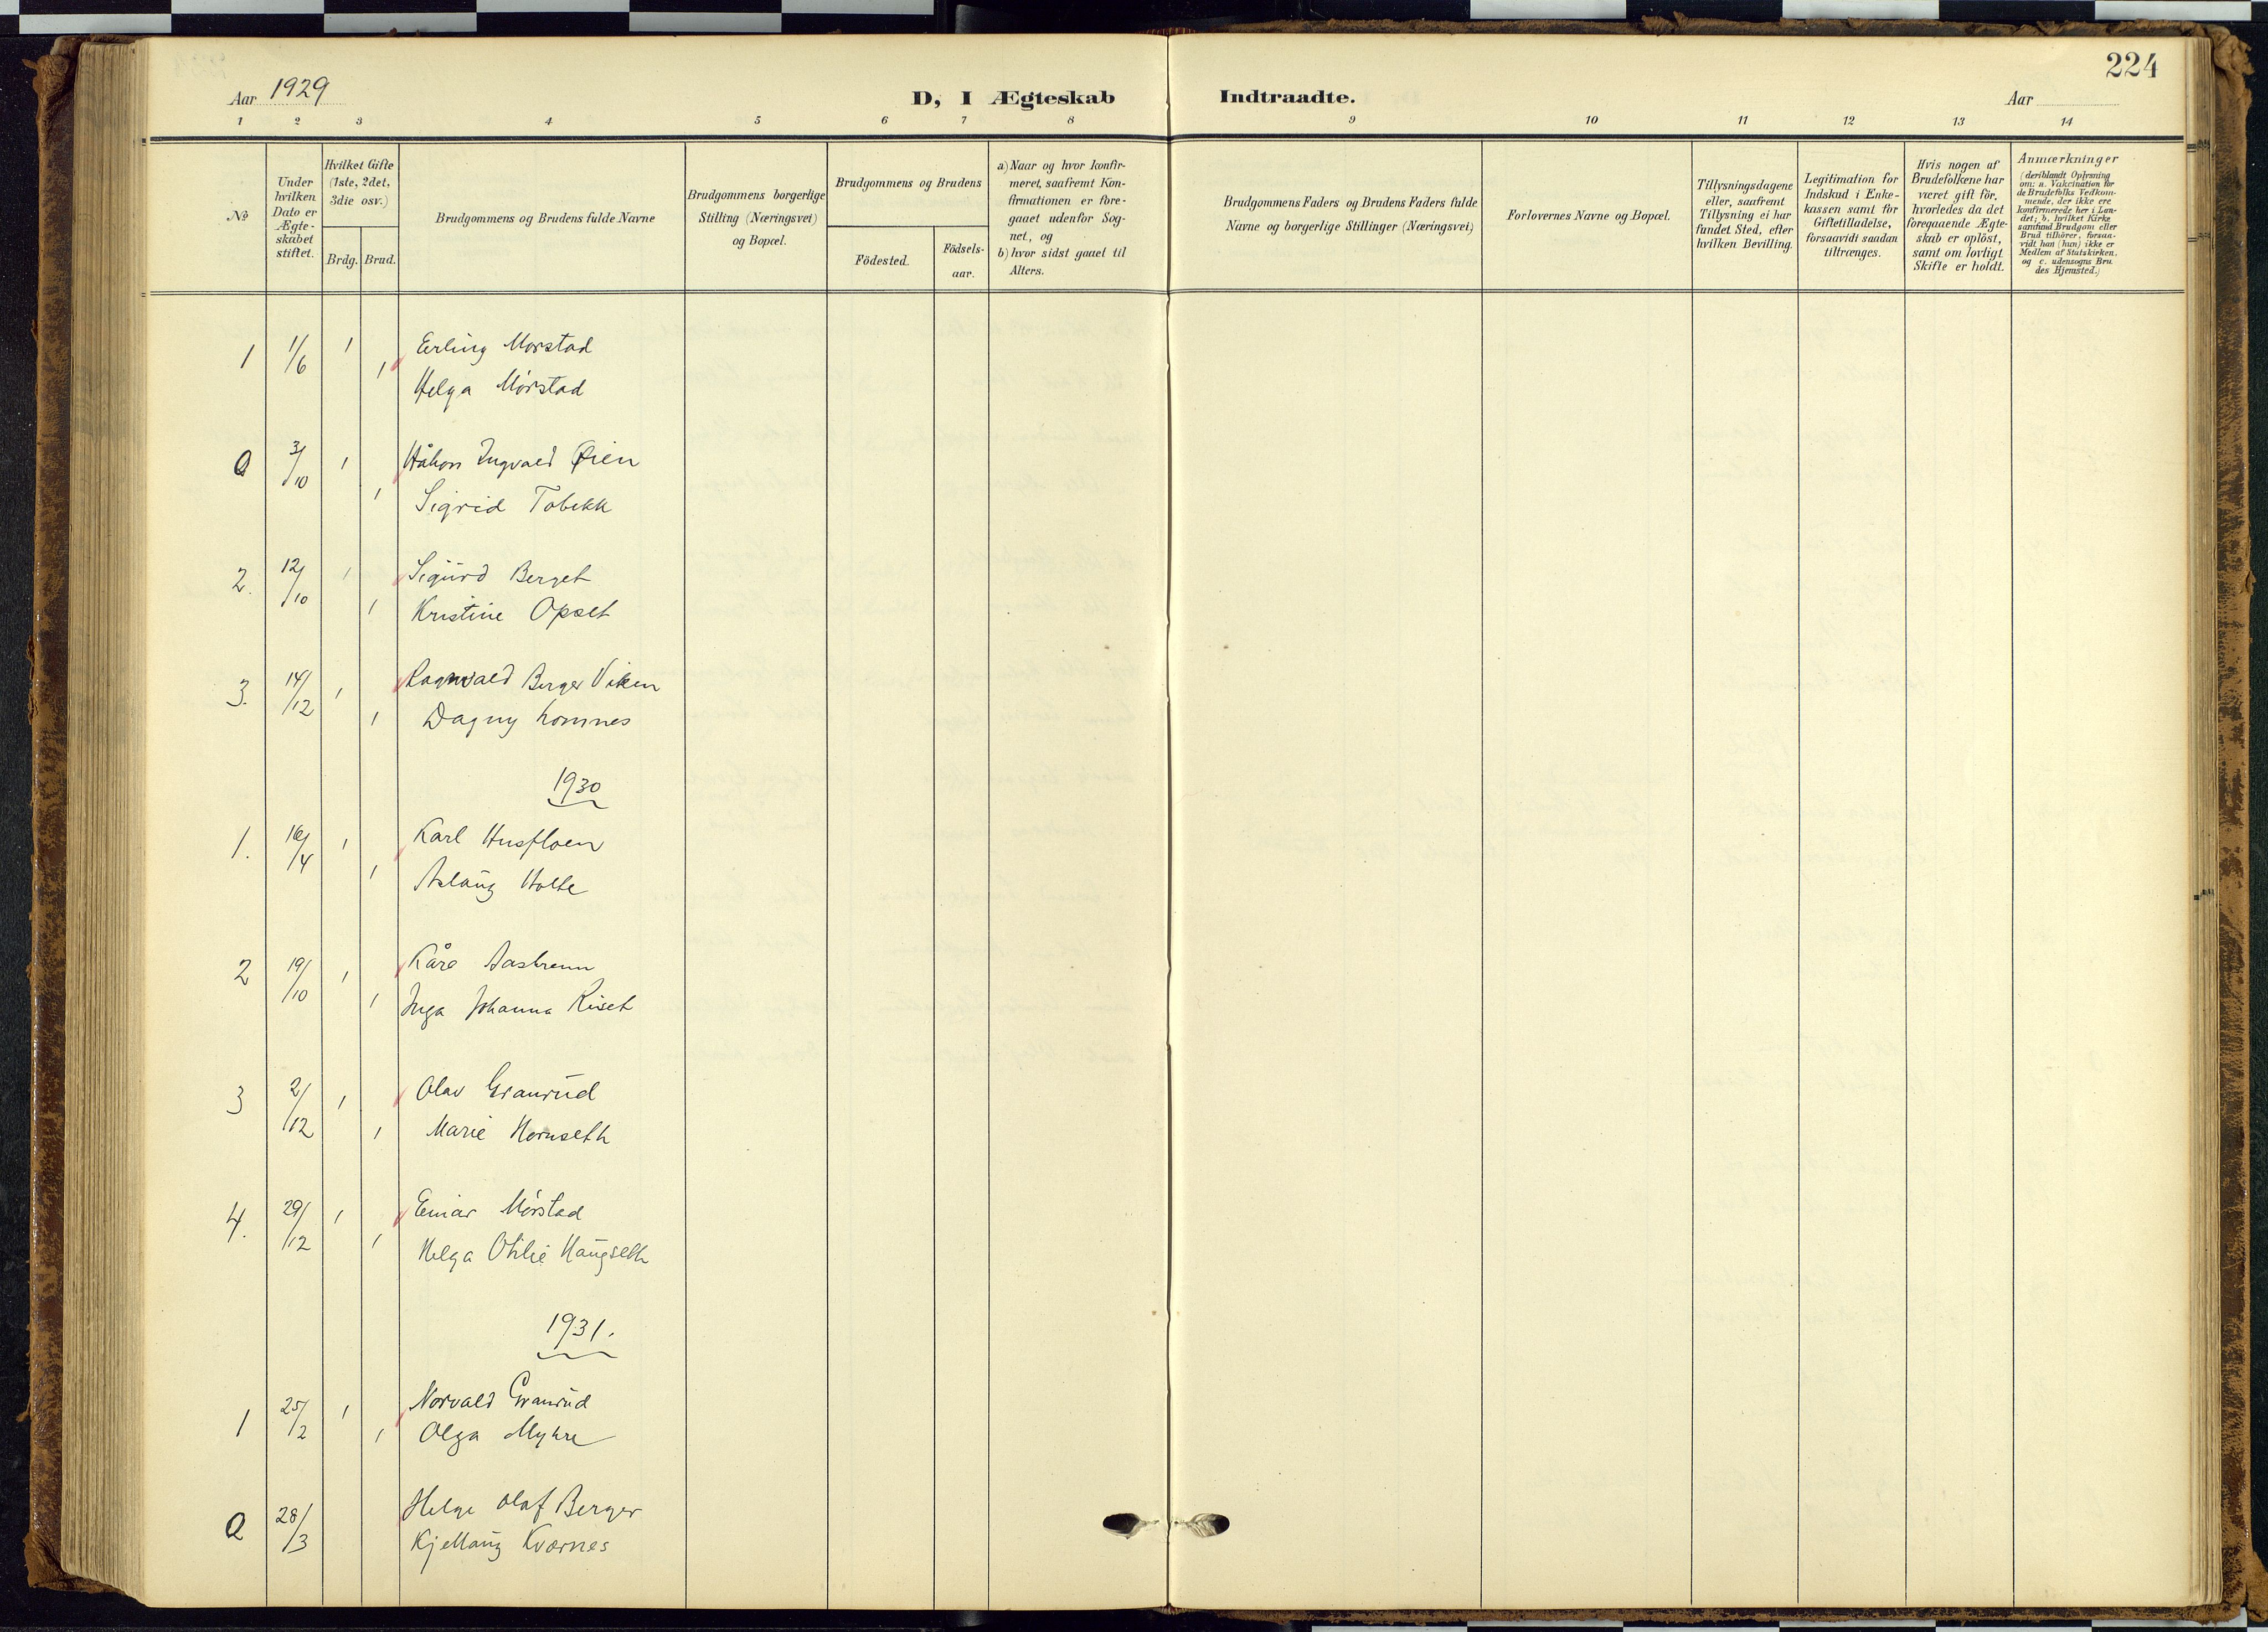 224
Aar 1929
D, I Ægteskab Indtraadte.
Aar
1 2 3 4 5 6 7 8 9 10 11 12 13 14
No
Under hvilken Dato er Ægteskabet stiftet.
Hvilket Gifte (1ste, 2det, 3die osv.)
Brdg. Brud.
Brudgommens og Brudens fulde Navne
Brudgommens borgerlige Stilling (Næringsvei) og Bopæl.
Brudgommens og Brudens
Födested.
Födsels-aar.
a) Naar og hvor konfir-
meret, saafremt Kon-
firmationen er fore-
gaaet udenfor Sog-
net, og
b) hvor sidst gaaet til
Alters.
Brudgommens Faders og Brudens Faders fulde
Navne og borgerlige Stillinger (Næringsvei)
Forlovernes Navne og Bopæl.
Tillysningsdagene
eller, saafremt
Tillysning ei har
fundet Sted, efter
hvilken Bevilling.
Legitimation for
Indskud i Enke-
kassen samt for
Giftetilladelse,
forsaavidt saadan
tiltrænges.
Hvis nogen af
Brudefolkene har
været gift för,
hvorledes da det
foregaaende Ægte-
skab er oplöst,
samt om lovligt
Skifte er holdt.
Anmærkninger
(deriblandt Oplysning
om: a. Vakcination for
de Brudefolks Vedkom-
mende, der ikke ere
konfirmerede her i Lan-
det; b. hvilket Kirke
samfund Brudgom eller
Brud tilhörer, forsaa-
vidt han (hun) ikke er
Medlem af Statskirken,
og c. udensogns Bru
des Hjemsted.)
1 1/6 1 Erling Morstad
1 Helga Mörstad
0 3/10 1 Håkon Ingvald Øien
1 Sigrid Tobekk
2. 12/10 1 Sigurd Berget
1 Kristine Opset
3. 14/12 1 Ragnvald Berger Viken
1 Dagny Lomnes
1930
1. 16/4 1 Karl Husfloen
1 Aslaug Holte
2 19/10 1 Kåre Aasbrenn
1 Inga Johanna Riset
3 2/12 1 Olav Granrud
1 Marie Hornseth
4. 29/12 1 Einar Mörstad
1 Helga Otilie Haugseth
1931.
1 25/2 1 Norvald Granrud
1 Olga Myhre
2 28/3 Helge Olaf Berger
Kjellaug Kværnes